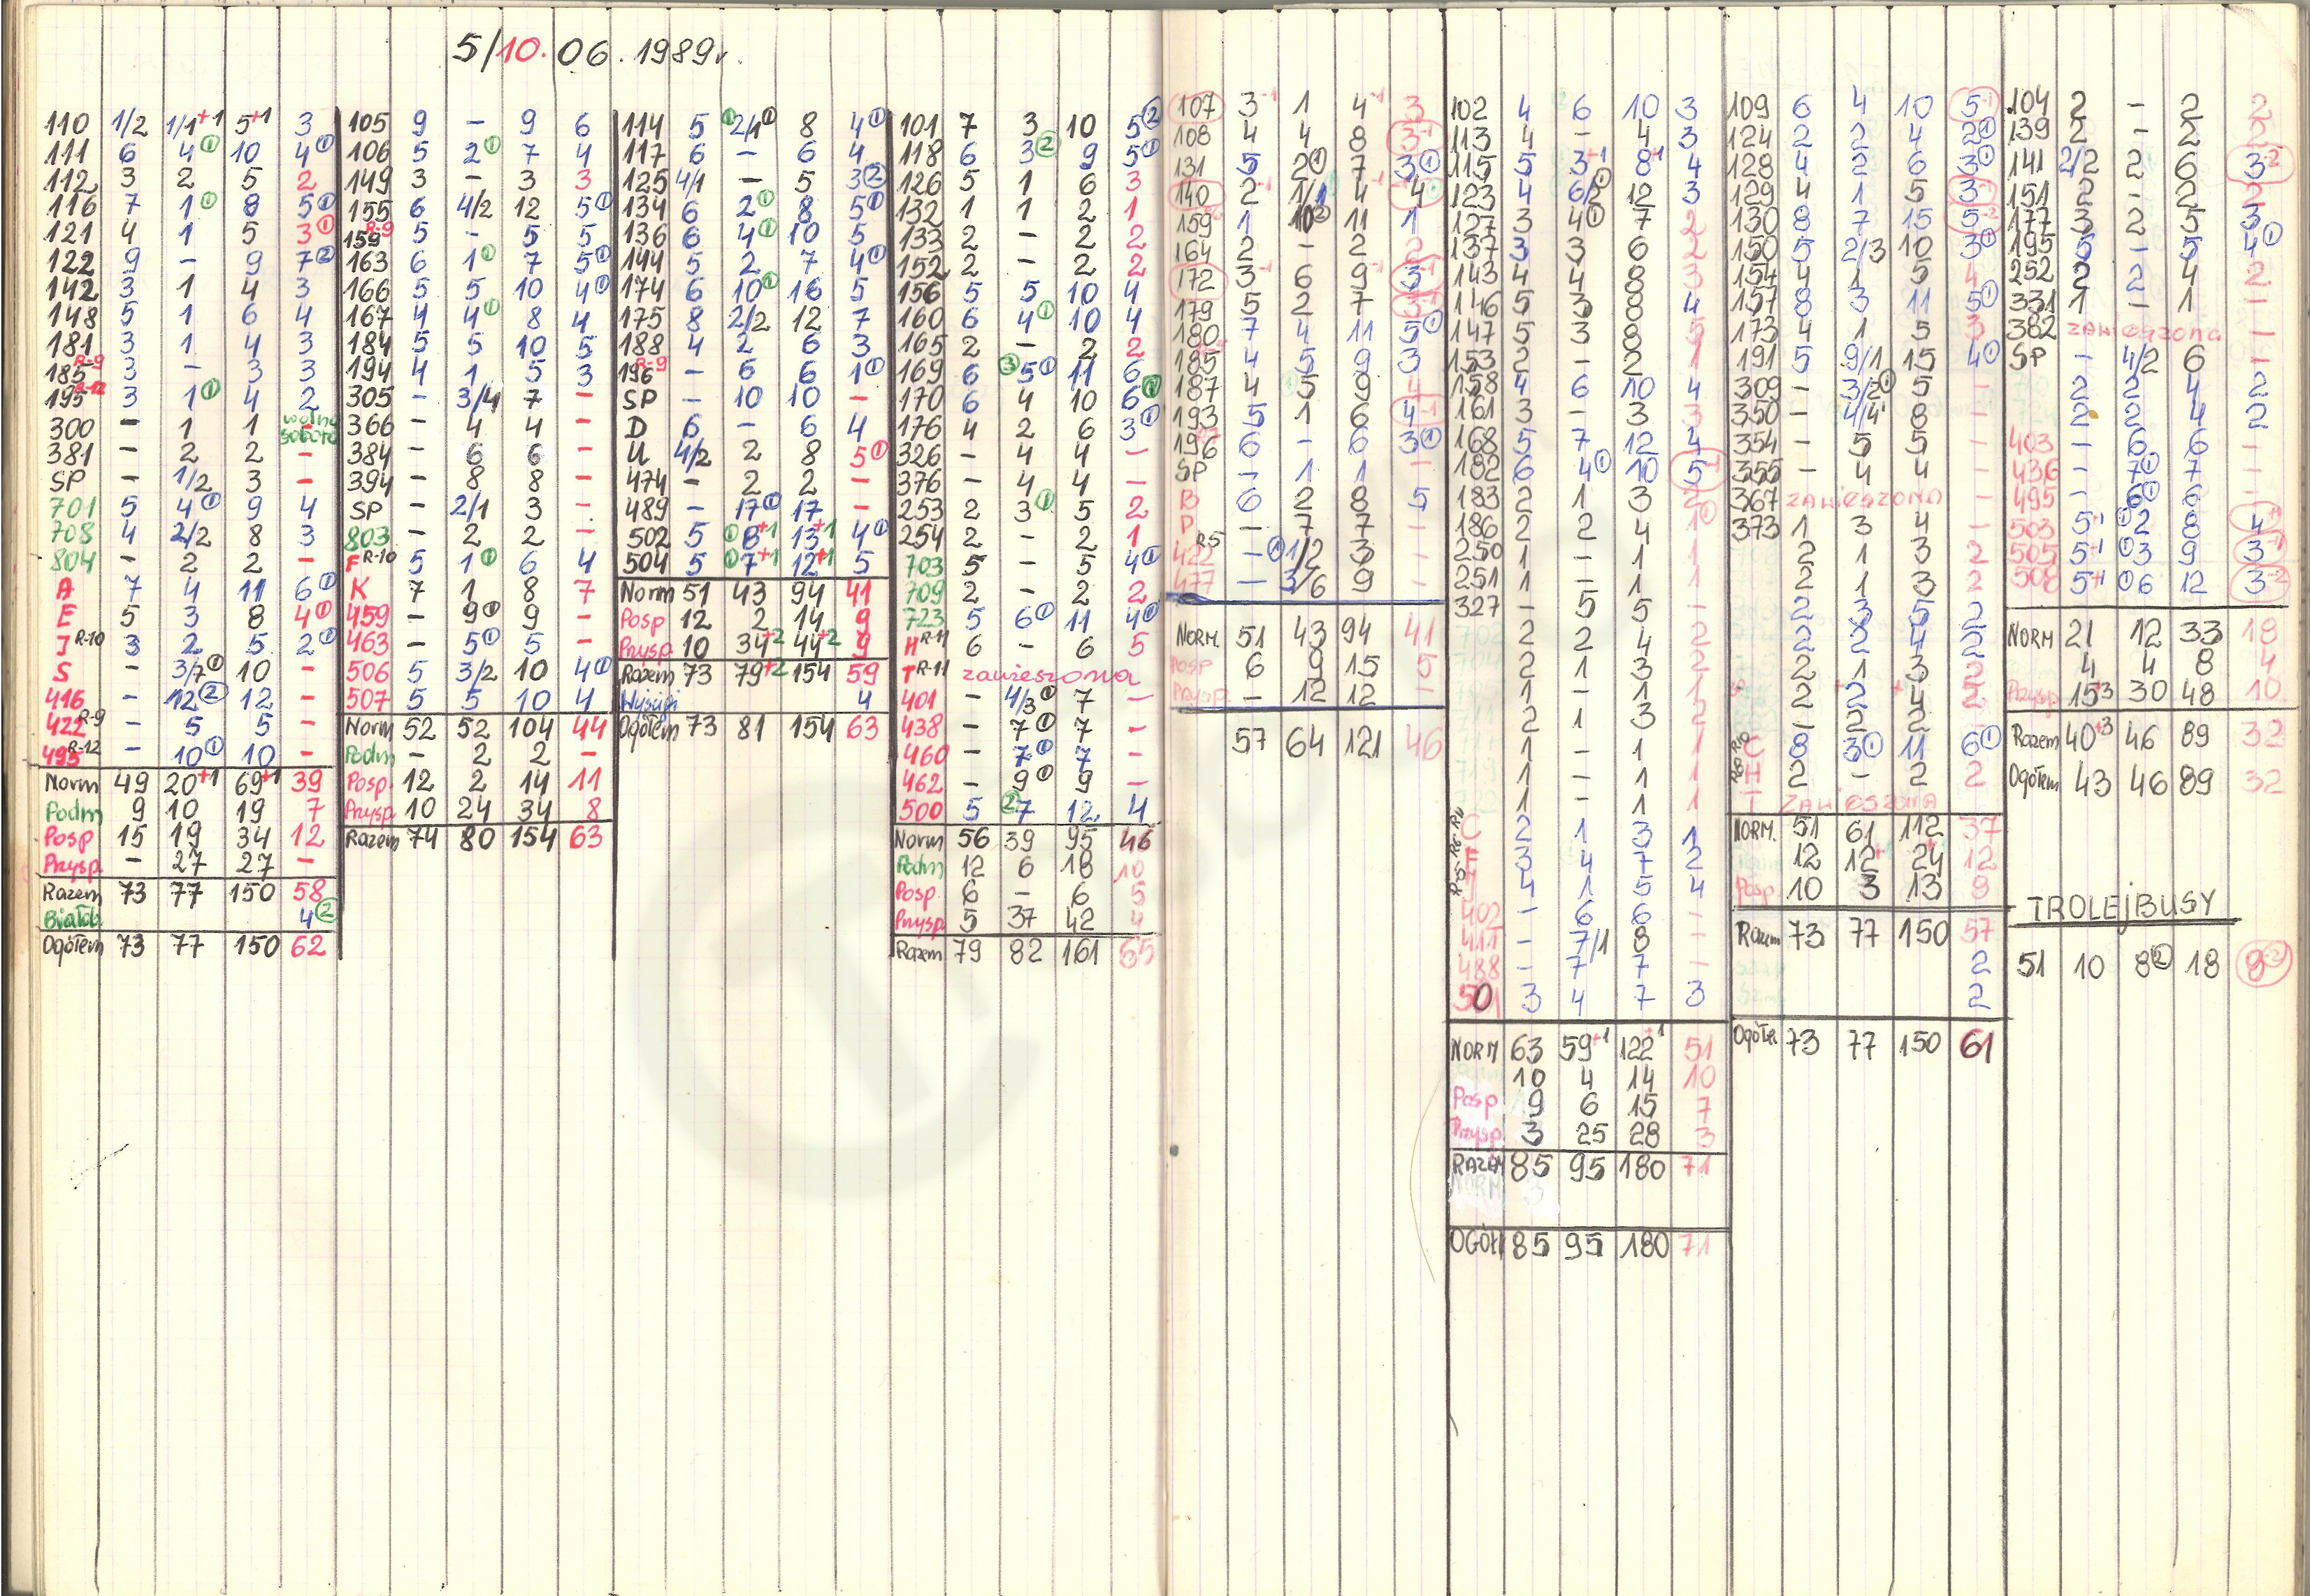 5/10.06.1989r.
110 1/2 1/1+1 5+1 3
111 6 4① 10 4①
112 3 2 5 2
116 7 1① 8 5①
121 4 1 5 3①
122 9 - 9 7②
142 3 1 4 3
148 5 1 6 4
181 3 1 4 3
185 R-9 3 - 3 3
195 R-12 3 1① 4 2
300 - 1 1 - wolna sobota
381 - 2 2 -
SP - 1/2 3 -
701 5 4① 9 4
708 4 2/2 8 3
804 - 2 2 -
A 7 4 11 6①
E 5 3 8 4①
J R-10 3 2 5 2①
S - 3/7① 10 -
416 - 12② 12 -
422 R-9 - 5 5 -
495 R-12 - 10① 10 -
Norm 49 20+1 69+1 39
Podm 9 10 19 7
Posp 15 19 34 12
Przysp. - 27 27 -
Razem 73 77 150 58
Białob. 4②
Ogółem 73 77 150 62
105 9 - 9 6
106 5 2① 7 4
149 3 - 3 3
155 6 4/2 12 5①
159 R-9 5 - 5 5
163 6 1① 7 5①
166 5 5 10 4①
167 4 4① 8 4
184 5 5 10 5
194 4 1 5 3
305 - 3/4 7 -
366 - 4 4 -
384 - 6 6 -
394 - 8 8 -
SP - 2/1 3 -
803 - 2 2 -
F R-10 5 1① 6 4
K 7 1 8 7
459 - 9① 9 -
463 - 5① 5 -
506 5 3/2 10 4①
507 5 5 10 4
Norm 52 52 104 44
Podm - 2 2 -
Posp. 12 2 14 11
Przysp. 10 24 34 8
Razem 74 80 154 63
114 5 ①2/1① 8 4①
117 6 - 6 4
125 4/1 - 5 3②
134 6 2① 8 5①
136 6 4① 10 5
144 5 2 7 4①
174 6 10① 16 5
175 8 2/2 12 7
188 4 2 6 3
196 R-9 - 6 6 1①
SP - 10 10 -
D 6 - 6 4
U 4/2 2 8 5①
474 - 2 2 -
489 - 17① 17 -
502 5 ①8+1 13+1 4①
504 5 ①7+1 12+1 5
Norm 51 43 94 41
Posp 12 2 14 9
Przysp. 10 34+2 44+2 9
Razem 73 79+2 154 59
Wyścigi 4
Ogółem 73 81 154 63
101 7 3 10 5②
118 6 3② 9 5①
126 5 1 6 3
132 1 1 2 1
133 2 - 2 2
152 2 - 2 2
156 5 5 10 4
160 6 4① 10 4
165 2 - 2 2
169 6 ③5① 11 6
170 6 4 10 6①
176 4 2 6 3①
326 - 4 4 -
376 - 4 4 -
253 2 3① 5 2
254 2 - 2 1
703 5 - 5 4①
709 2 - 2 2
723 5 6① 11 4①
H R-11 6 - 6 5
T R-11 zawieszona
401 - 4/3① 7 -
438 - 7① 7 -
460 - 7① 7 -
462 - 9① 9 -
500 5 ②7 12 4
Norm 56 39 95 46
Podm 12 6 18 10
Posp. 6 - 6 5
Przysp. 5 37 42 4
Razem 79 82 161 65
107 3-1 1 4-1 3
108 4 4 8 3-1
131 5 2① 7 3①
140 2-1 1/1 4-1 4
159 1 10② 11 1
164 2 - 2 2
172 3-1 6 9-1 3-1
179 5 2 7 3-1
180 7 4 11 5①
185 4 5 9 3
187 4 5 9 4
193 5 1 6 4-1
196 6 - 6 3①
SP - 1 1 -
B 6 2 8 5
P - 7 7 -
422 R5 - ①1/2 3 -
477 - 3/6 9 -
NORM. 51 43 94 41
Posp 6 9 15 5
Przysp - 12 12 -
57 64 121 46
102 4 6 10 3
113 4 - 4 3
115 5 3+1 8+1 4
123 4 6/2① 12 3
127 3 4① 7 2
137 3 3 6 2
143 4 4 8 3
146 5 3 8 4
147 5 3 8 5
153 2 - 2 1
158 4 6 10 4
161 3 - 3 3
168 5 7 12 4
182 6 4① 10 5-1
183 2 1 3 2
186 2 2 4 1①
250 1 - 1 1
251 1 - 1 1
327 - 5 5 -
2 2 4 2
2 1 3 2
1 - 1 1
2 1 3 2
1 - 1 1
719 1 - 1 1
1 - 1 1
C 2 1 3 1
F 3 4 7 2
4 1 5 4
402 - 6 6 -
411 - 7/1 8 -
488 - 7 7 -
501 3 4 7 3
NORM 63 59+1 122+1 51
10 4 14 10
Posp 9 6 15 7
Przysp. 3 25 28 3
RAZEM 85 95 180 71
OGÓŁ 85 95 180 71
109 6 4 10 5-1
124 2 2 4 2①
128 4 2 6 3①
129 4 1 5 3-1
130 8 7 15 5-2
150 5 2/3 10 3①
154 4 1 5 4
157 8 3 11 5①
173 4 1 5 3
191 5 9/1 15 4①
309 - 3/2① 5 -
350 - 4/4 8 -
354 - 5 5 -
355 - 4 4 -
367 ZAWIESZONA -
373 1 3 4 -
2 1 3 2
2 1 3 2
2 3 5 2
2 2 4 2
2 1 3 2
2 2 4 2
- 2 2
C 8 3① 11 6①
H 2 - 2 2
T ZAWIESZONA
NORM. 51 61 112 37
12 12 24 12
Posp 10 3 13 8
Razem 73 77 150 57
2
2
Ogółe 73 77 150 61
104 2 - 2 2
139 2 - 2 2
141 2/2 2 6 3-2
151 2 - 2 2
177 3 2 5 3
195 5 - 5 4①
252 2 2 4 2
331 1 - 1 -
382 zawieszona -
SP - 4/2 6 -
2 2 4 2
2 2 4 2
403 - 6 6 -
436 - 7① 7 -
495 - 6① 6 -
503 5+1 ①2 8 4+1
505 5+1 ①3 9 3-1
508 5+1 ①6 12 3-2
NORM 21 12 33 18
4 4 8 4
Przysp. 15+3 30 48 10
Razem 40+3 46 89 32
Ogółem 43 46 89 32
TROLEJBUSY
51 10 8② 18 8-2